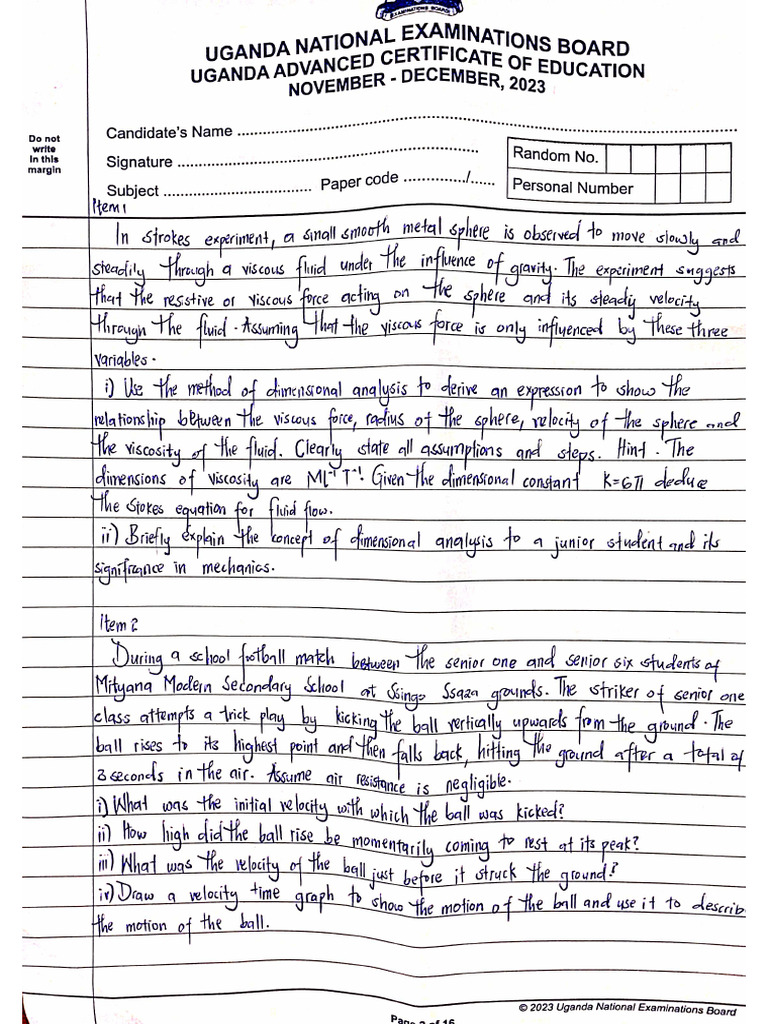 EXAMINATIONS BOARD
UGANDA NATIONAL EXAMINATIONS BOARD
UGANDA ADVANCED CERTIFICATE OF EDUCATION
NOVEMBER - DECEMBER, 2023
Do not
write
in this
margin
Candidate's Name ..........
Signature ..........
Random No.
Subject .......... Paper code ........../......
Personal Number
Item 1
In strokes experiment, a small smooth metal sphere is observed to move slowly and
steadily through a viscous fluid under the influence of gravity. The experiment suggests
that the resistive or viscous force acting on the sphere and its steady velocity
through the fluid. Assuming that the viscous force is only influenced by these three
variables.
i) Use the method of dimensional analysis to derive an expression to show the
relationship between the viscous force, radius of the sphere, velocity of the sphere and
the viscosity of the fluid. Clearly state all assumptions and steps. Hint. The
dimensions of viscosity are ML⁻¹T⁻¹. Given the dimensional constant K=6π deduce
the Stokes equation for fluid flow.
ii) Briefly explain the concept of dimensional analysis to a junior student and its
significance in mechanics.
Item 2
During a school football match between the senior one and senior six students of
Mityana Modern Secondary School at Ssingo Ssaza grounds. The striker of senior one
class attempts a trick play by kicking the ball vertically upwards from the ground. The
ball rises to its highest point and then falls back, hitting the ground after a total of
3 seconds in the air. Assume air resistance is negligible.
i) What was the initial velocity with which the ball was kicked?
ii) How high did the ball rise be momentarily coming to rest at its peak?
iii) What was the velocity of the ball just before it struck the ground?
iv) Draw a velocity time graph to show the motion of the ball and use it to describ
the motion of the ball.
© 2023 Uganda National Examinations Board
Page 2 of 16